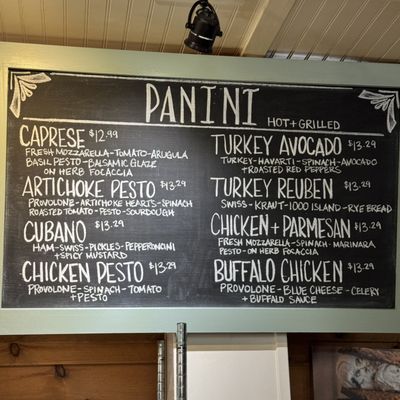 PANINI HOT + GRILLED
CAPRESE $12.99
FRESH MOZZARELLA - TOMATO - ARUGULA
BASIL PESTO - BALSAMIC GLAZE
ON HERB FOCACCIA
ARTICHOKE PESTO $13.29
PROVOLONE - ARTICHOKE HEARTS - SPINACH
ROASTED TOMATO - PESTO - SOURDOUGH
CUBANO $13.29
HAM - SWISS - PICKLES - PEPPERONCINI
+ SPICY MUSTARD
CHICKEN PESTO $13.29
PROVOLONE - SPINACH - TOMATO
+ PESTO
TURKEY AVOCADO $13.29
TURKEY - HAVARTI - SPINACH - AVOCADO
+ ROASTED RED PEPPERS
TURKEY REUBEN $13.29
SWISS - KRAUT - 1000 ISLAND - RYE BREAD
CHICKEN + PARMESAN $13.29
FRESH MOZZARELLA - SPINACH - MARINARA
PESTO - ON HERB FOCACCIA
BUFFALO CHICKEN $13.29
PROVOLONE - BLUE CHEESE - CELERY
+ BUFFALO SAUCE